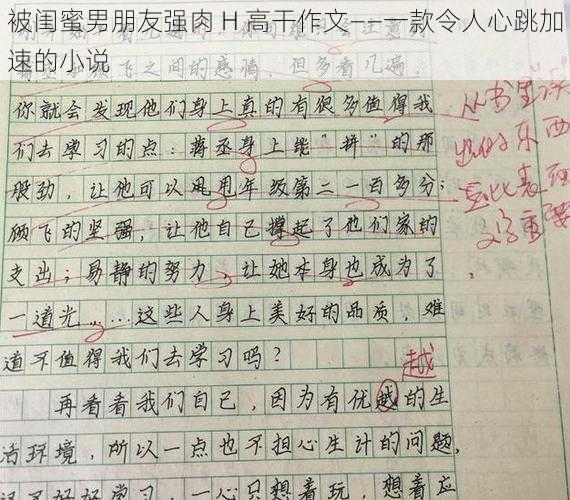 被闺蜜男朋友强肉 H 高干作文——一款令人心跳加
速的小说
飞之间的感情，但多看几遍，
你就会发现他们身上真的有很多值得我
们去学习的点：蒋丞身上能“拼”的那
股劲，让他可以甩甩年级第二一百多分；
顾飞的坚强，让他自己撑起了他们家的
支出；易静的努力，让她本身也成为了
一道光……这些人身上美好的品质，难
道不值得我们去学习吗？
越
再看看我们自己，因为有优越的生
活环境，所以一点也不担心生计的问题，
好好学习，一心只想着玩，想着应
从书里“读”
出的东西
要比表现
文字重要